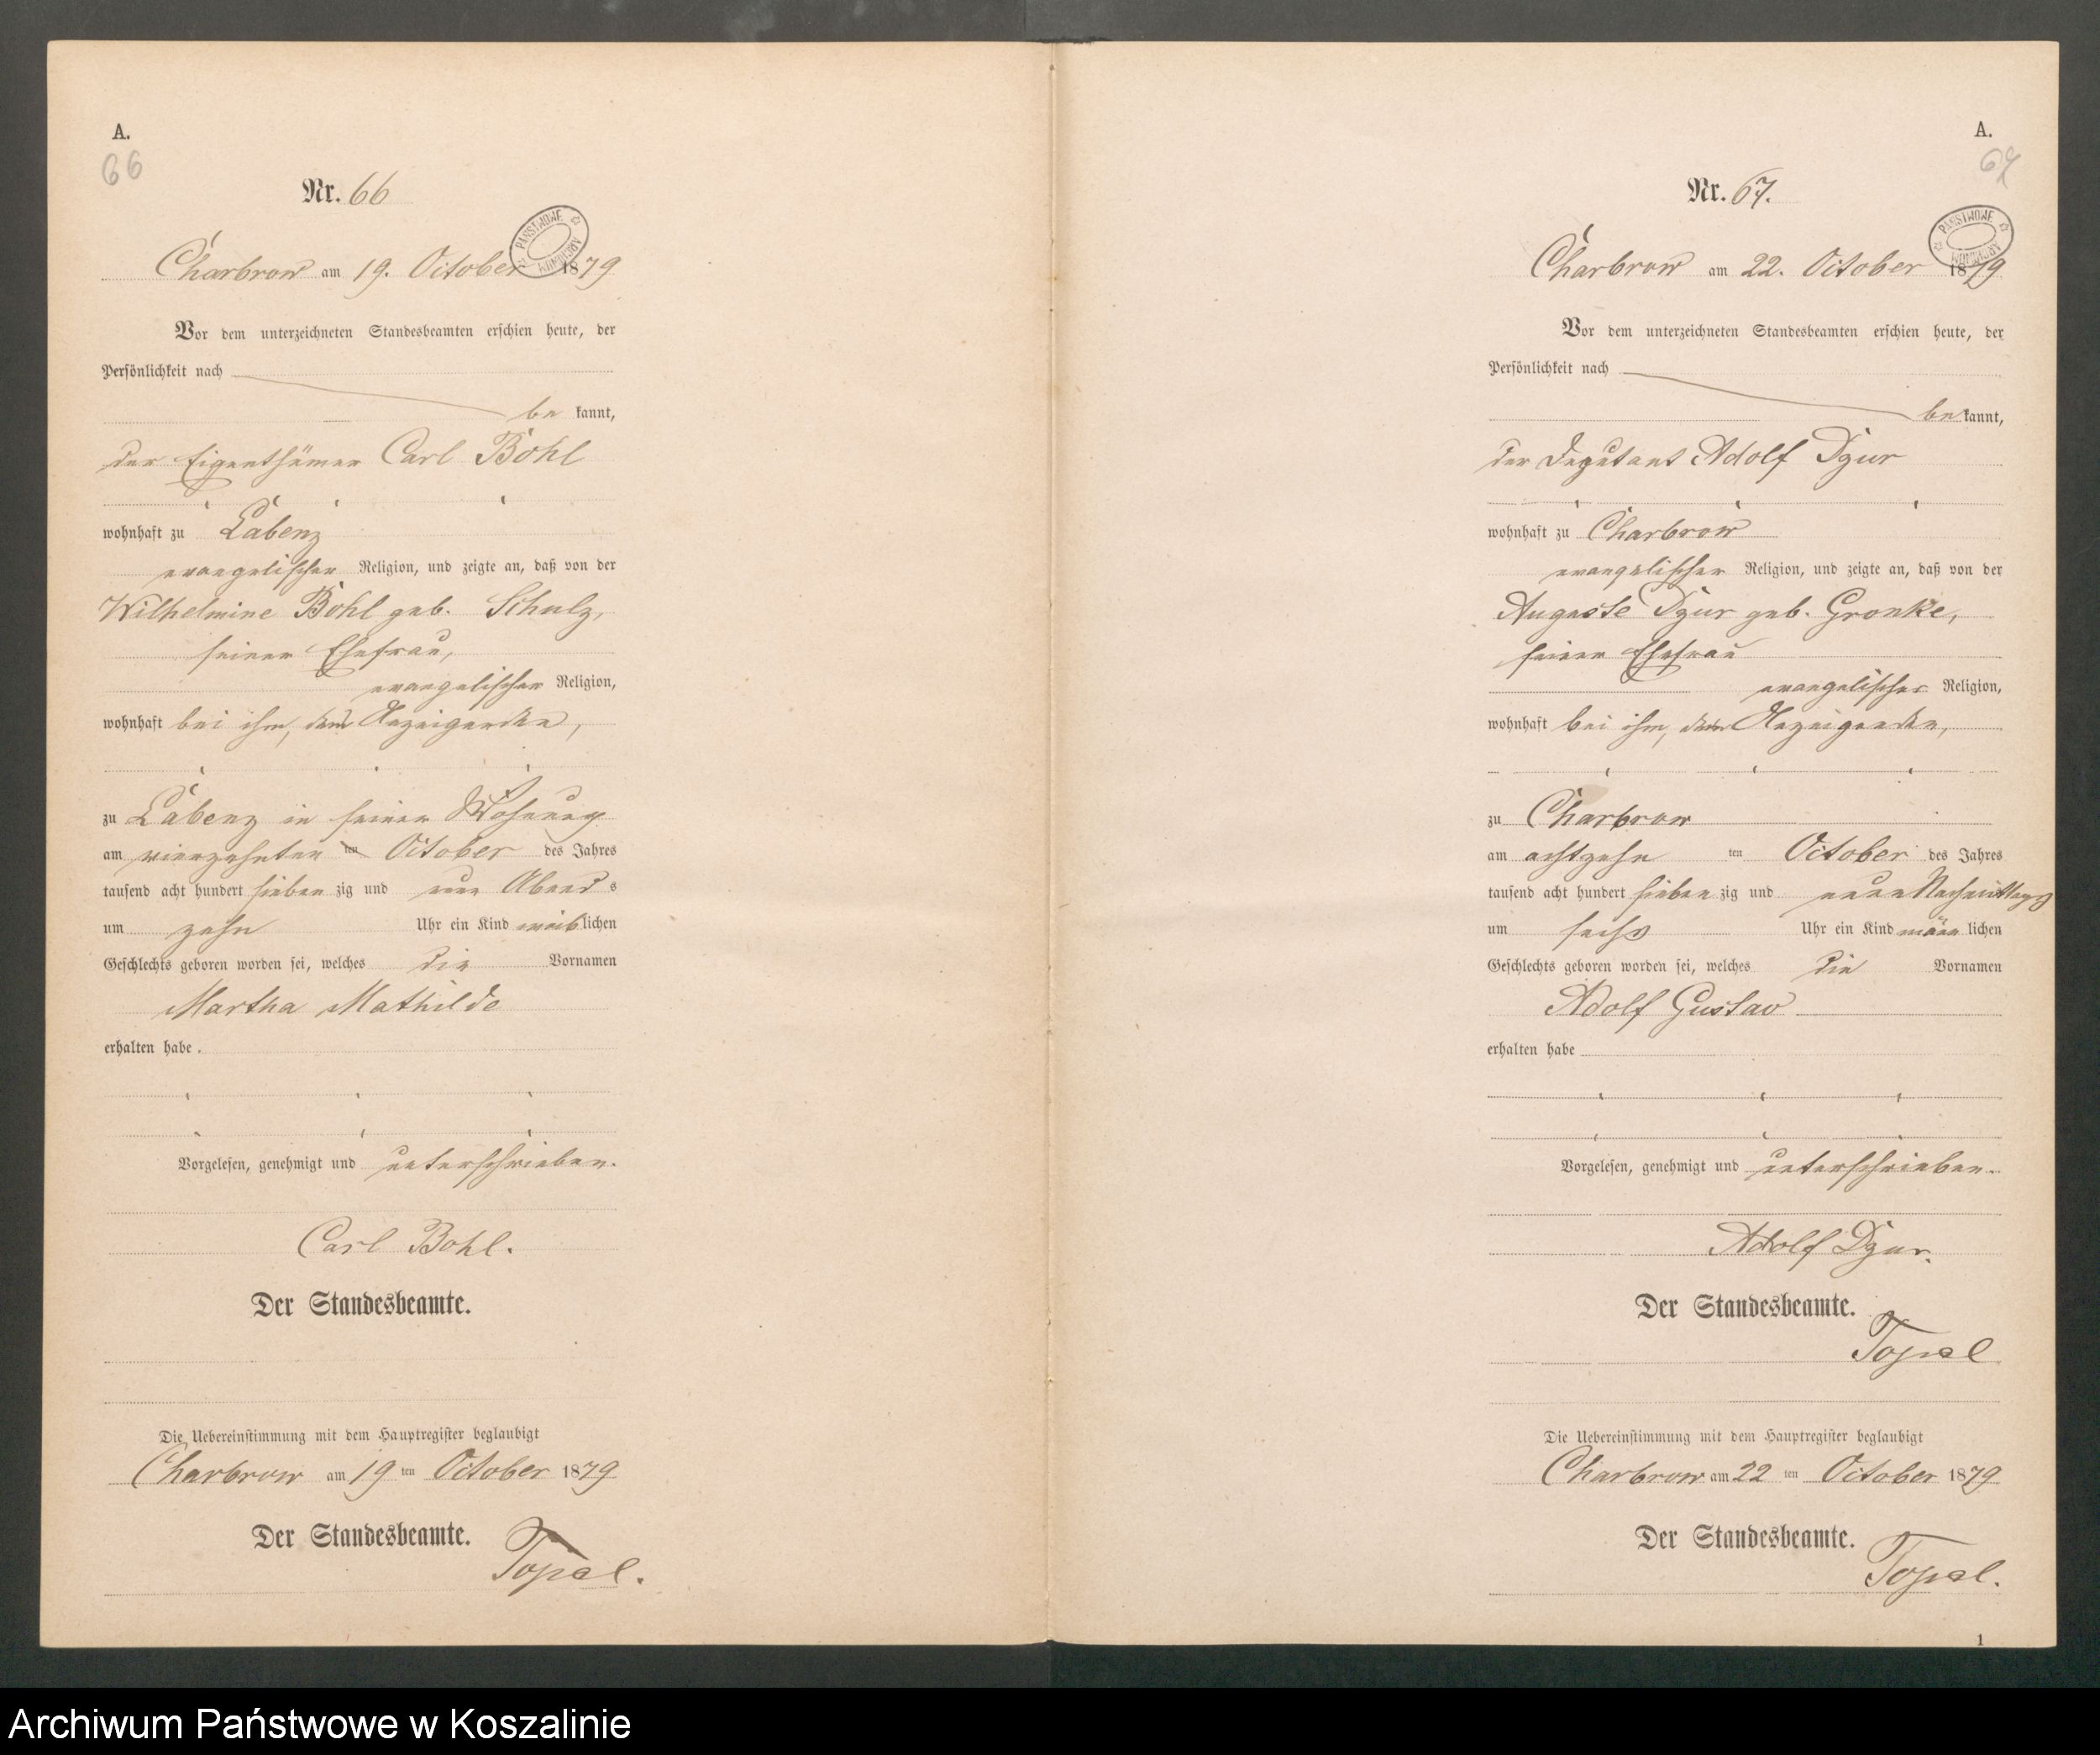 A.
66
Nr. 66
PAŃSTWOWE ARCHIWUM
Charbrow am 19. October 1879
Vor dem unterzeichneten Standesbeamten erschien heute, der
Persönlichkeit nach
be kannt,
der Eigenthümer Carl Bohl
wohnhaft zu Labenz
evangelischer Religion, und zeigte an, daß von der
Wilhelmine Bohl geb. Schulz,
seiner Ehefrau,
evangelischer Religion,
wohnhaft bei ihm, dem Anzeigenden,
zu Labenz in seiner Wohnung
am vierzehnten ten October des Jahres
tausend acht hundert sieben zig und neun Abend s
um zehn Uhr ein Kind weiblichen
Geschlechts geboren worden sei, welches die Vornamen
Martha Mathilde
erhalten habe.
Vorgelesen, genehmigt und unterschrieben.
Carl Bohl.
Der Standesbeamte.
Die Uebereinstimmung mit dem Hauptregister beglaubigt
Charbrow am 19 ten October 1879
Der Standesbeamte.
Topel.
A.
67
Nr. 67.
PAŃSTWOWE ARCHIWUM
Charbrow am 22. October 1879
Vor dem unterzeichneten Standesbeamten erschien heute, der
Persönlichkeit nach
be kannt,
der Deputant Adolf Dzur
wohnhaft zu Charbrow
evangelischer Religion, und zeigte an, daß von der
Auguste Dzur geb. Gronke,
seiner Ehefrau
evangelischer Religion,
wohnhaft bei ihm, dem Anzeigenden,
zu Charbrow
am achtzehn ten October des Jahres
tausend acht hundert sieben zig und neun Nachmittags
um sechs Uhr ein Kind männ lichen
Geschlechts geboren worden sei, welches die Vornamen
Adolf Gustav
erhalten habe
Vorgelesen, genehmigt und unterschrieben.
Adolf Dzur.
Der Standesbeamte.
Topel
Die Uebereinstimmung mit dem Hauptregister beglaubigt
Charbrow am 22 ten October 1879
Der Standesbeamte.
Topel.
1
Archiwum Państwowe w Koszalinie